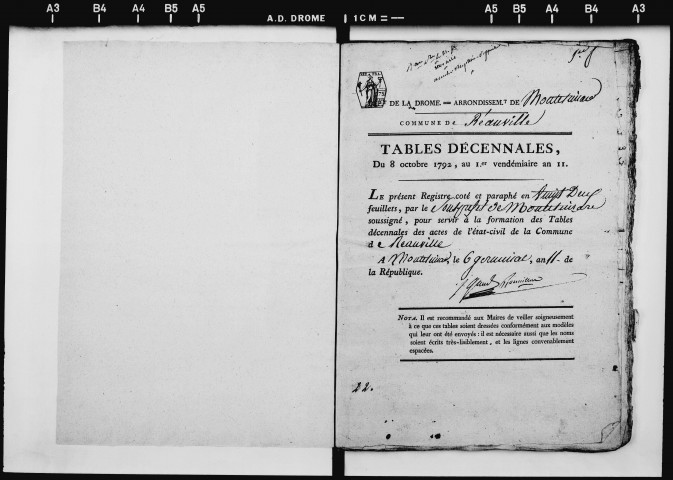 A3 B4 A4 B5 A5 A.D. DROME 1 CM A5 B5 A4 B4 A3
DE LA DROME. — ARRONDISSEM.T DE Montelimar
COMMUNE De Réauville
TABLES DÉCENNALES,
Du 8 octobre 1792, au 1.er vendémiaire an 11.
LE présent Registre coté et paraphé en Vingt Deux
feuillets, par le Souspréfet de Montelimar
soussigné, pour servir à la formation des Tables
décennales des actes de l'état-civil de la Commune
de Reauville
A Montelimar, le 6 germinal, an 11 de
la République.
NOTA. Il est recommandé aux Maires de veiller soigneusement
à ce que ces tables soient dressées conformément aux modèles
qui leur ont été envoyés : il est nécessaire aussi que les noms
soient écrits très-lisiblement, et les lignes convenablement
espacées.
22.